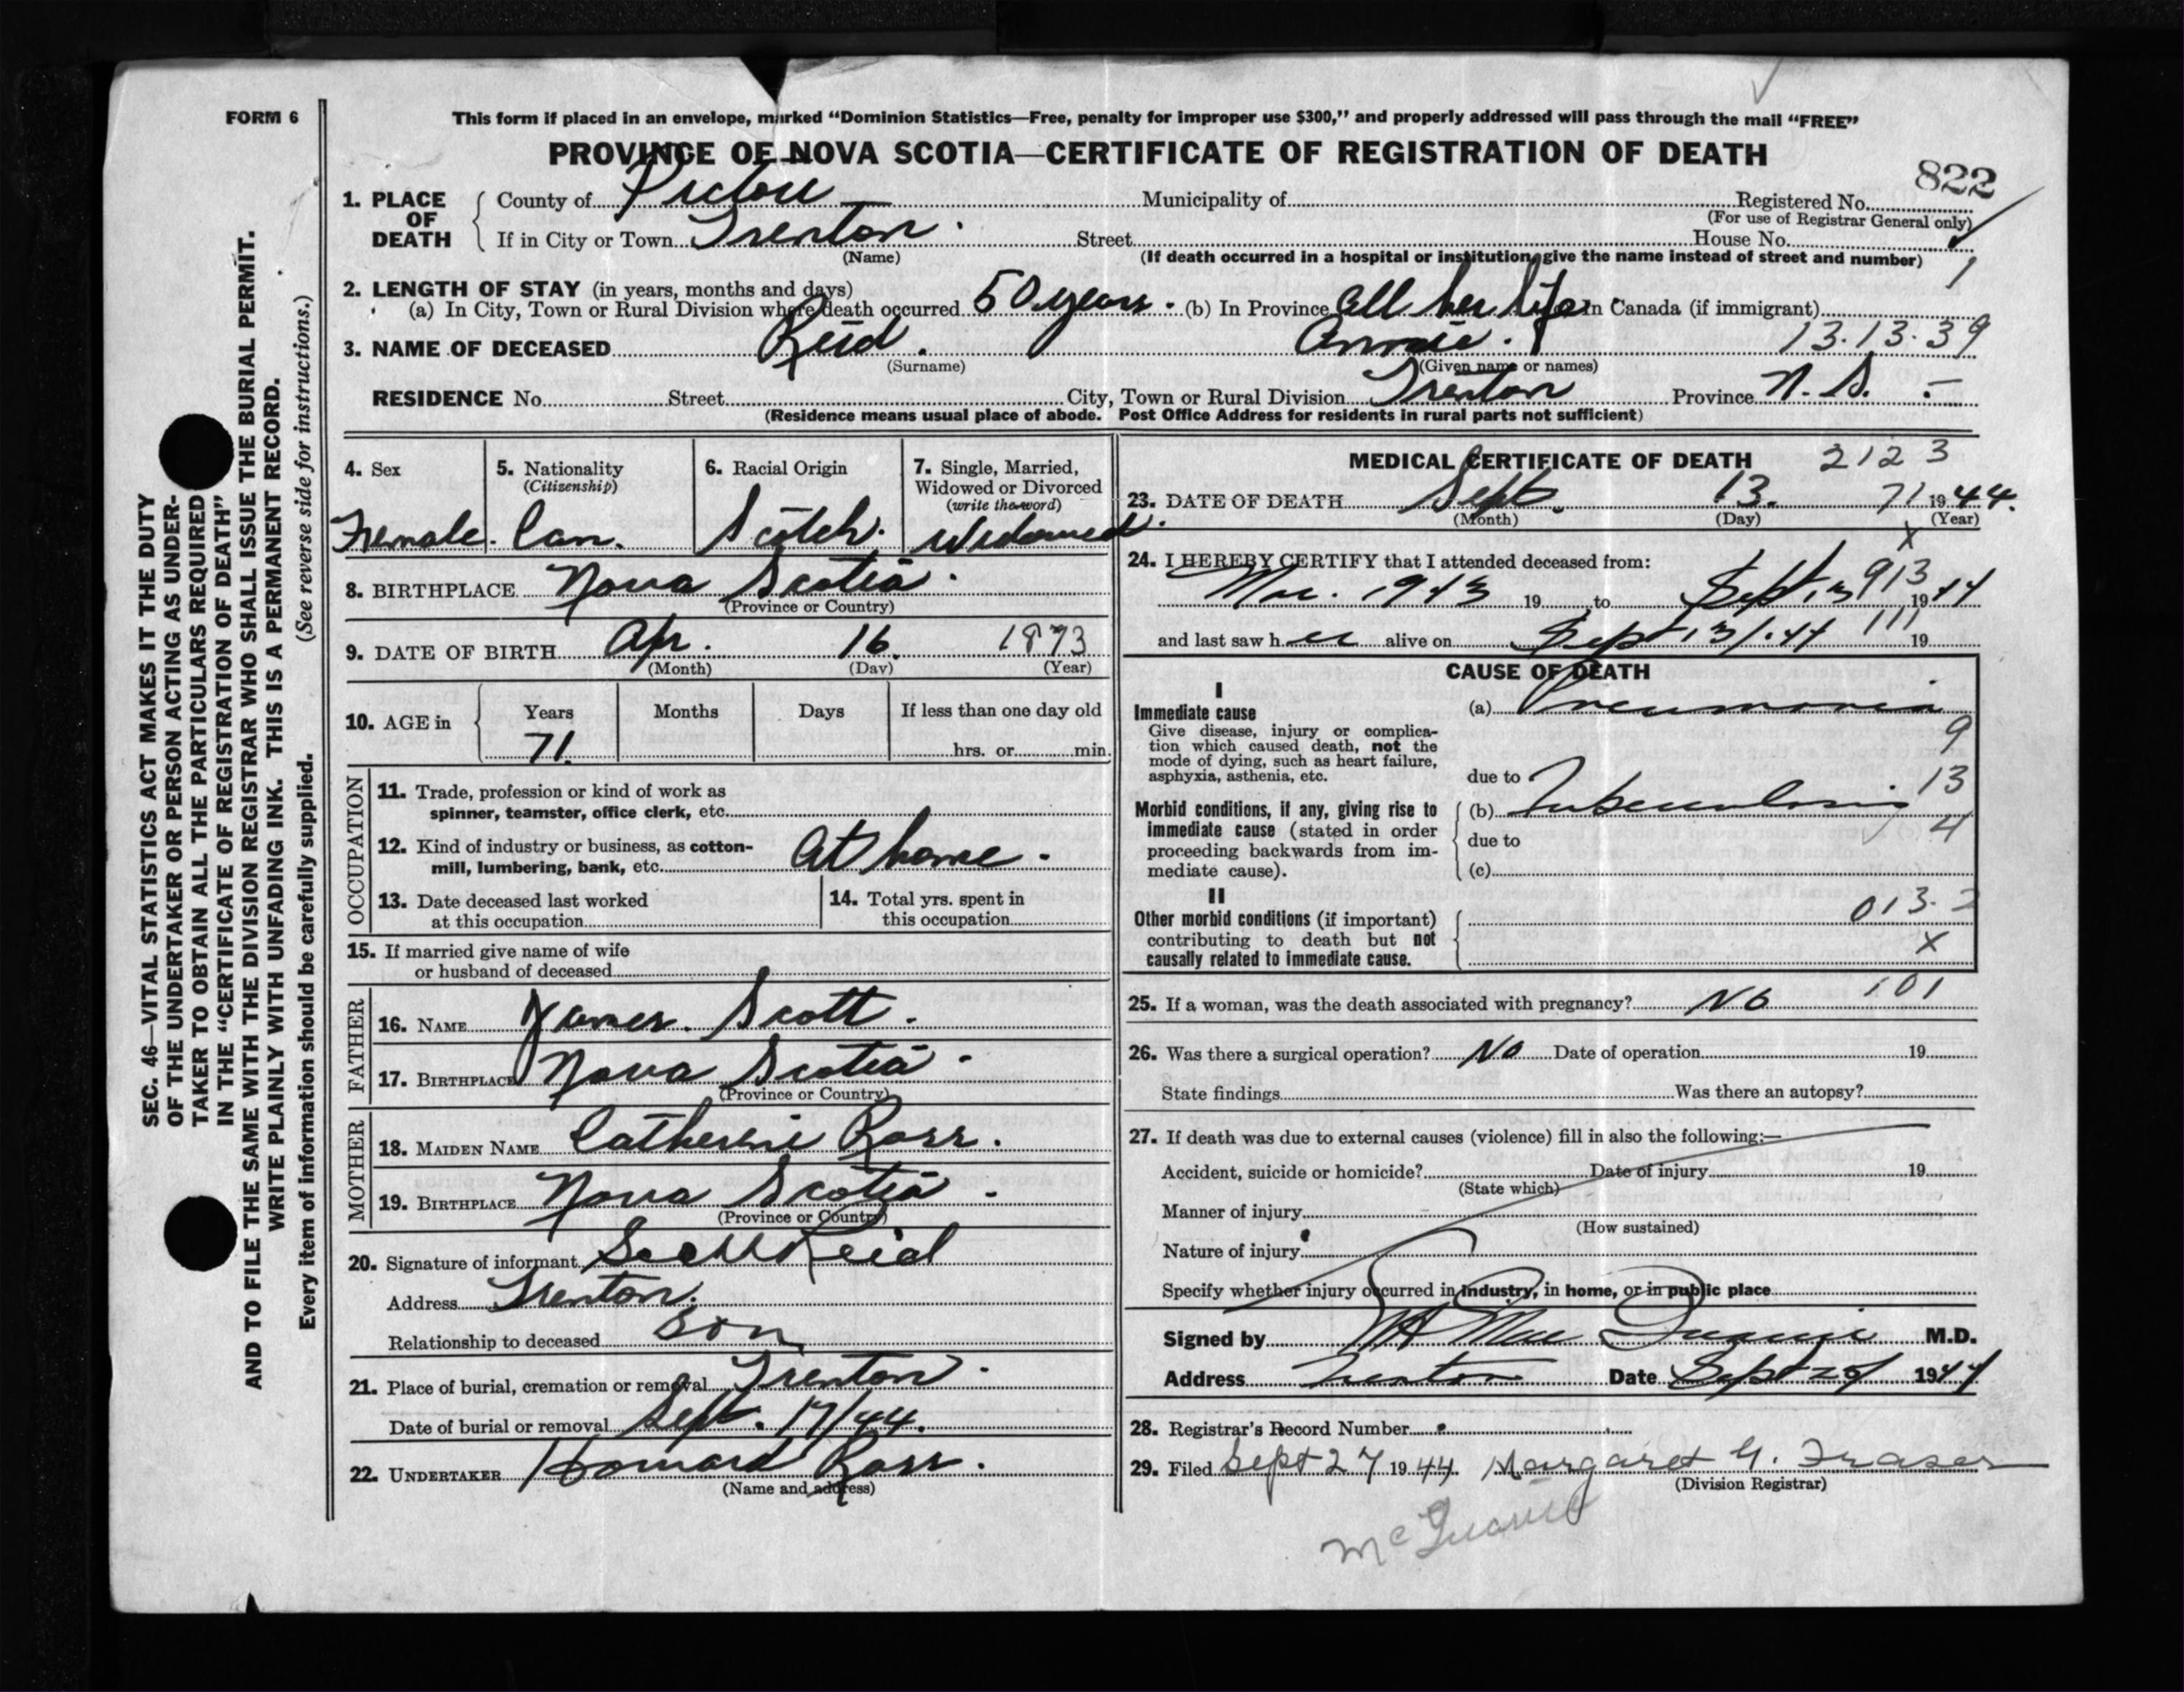 FORM 6
This form if placed in an envelope, marked "Dominion Statistics—Free, penalty for improper use $300," and properly addressed will pass through the mail "FREE"
PROVINCE OF NOVA SCOTIA—CERTIFICATE OF REGISTRATION OF DEATH
822
1. PLACE OF DEATH
County of Pictou Municipality of Registered No.
(For use of Registrar General only)
If in City or Town Trenton. Street House No.
(Name) (If death occurred in a hospital or institution, give the name instead of street and number)
1
2. LENGTH OF STAY (in years, months and days)
(a) In City, Town or Rural Division where death occurred 50 years. (b) In Province All her life In Canada (if immigrant)
3. NAME OF DECEASED Reid. Annie. 13.13.39
(Surname) (Given name or names)
RESIDENCE No. Street City, Town or Rural Division Trenton Province N. S. —
(Residence means usual place of abode. Post Office Address for residents in rural parts not sufficient)
4. Sex
Female.
5. Nationality
(Citizenship)
Can.
6. Racial Origin
Scotch.
7. Single, Married, Widowed or Divorced
(write the word)
Widowed.
8. BIRTHPLACE Nova Scotia.
(Province or Country)
9. DATE OF BIRTH Apr. 16. 1873
(Month) (Day) (Year)
10. AGE in Years Months Days If less than one day old
71. hrs. or min.
OCCUPATION
11. Trade, profession or kind of work as
spinner, teamster, office clerk, etc.
12. Kind of industry or business, as cotton-
mill, lumbering, bank, etc. At home.
13. Date deceased last worked
at this occupation
14. Total yrs. spent in
this occupation
15. If married give name of wife
or husband of deceased
FATHER
16. NAME James. Scott.
17. BIRTHPLACE Nova Scotia.
(Province or Country)
MOTHER
18. MAIDEN NAME Catherine Ross.
19. BIRTHPLACE Nova Scotia.
(Province or Country)
20. Signature of informant Scott Reid
Address Trenton.
Relationship to deceased Son
21. Place of burial, cremation or removal Trenton.
Date of burial or removal Sept. 17/44.
22. UNDERTAKER Howard Ross.
(Name and address)
MEDICAL CERTIFICATE OF DEATH 2123
23. DATE OF DEATH Sept. 13. 71 1944.
(Month) (Day) (Year)
x
24. I HEREBY CERTIFY that I attended deceased from:
913
1943 19 to Sept 13 1944
and last saw her alive on Sept 13/.44 111 19
CAUSE OF DEATH
I
Immediate cause (a) Pneumonia
Give disease, injury or complica-
tion which caused death, not the
mode of dying, such as heart failure,
asphyxia, asthenia, etc.
9
due to 13
Morbid conditions, if any, giving rise to
immediate cause (stated in order
proceeding backwards from im-
mediate cause).
(b) Tuberculosis
due to 4
(c)
II
Other morbid conditions (if important)
contributing to death but not
causally related to immediate cause.
013.2
x
101
25. If a woman, was the death associated with pregnancy? No
26. Was there a surgical operation? No Date of operation 19
State findings Was there an autopsy?
27. If death was due to external causes (violence) fill in also the following:—
Accident, suicide or homicide? Date of injury 19
(State which)
Manner of injury
(How sustained)
Nature of injury
Specify whether injury occurred in industry, in home, or in public place
Signed by M.D.
Address Trenton Date Sept 1944
28. Registrar's Record Number
29. Filed Sept 27 1944. Margaret G. Fraser
(Division Registrar)
SEC. 46—VITAL STATISTICS ACT MAKES IT THE DUTY
OF THE UNDERTAKER OR PERSON ACTING AS UNDER-
TAKER TO OBTAIN ALL THE PARTICULARS REQUIRED
IN THE "CERTIFICATE OF REGISTRATION OF DEATH"
AND TO FILE THE SAME WITH THE DIVISION REGISTRAR WHO SHALL ISSUE THE BURIAL PERMIT.
WRITE PLAINLY WITH UNFADING INK. THIS IS A PERMANENT RECORD.
Every item of information should be carefully supplied. (See reverse side for instructions.)